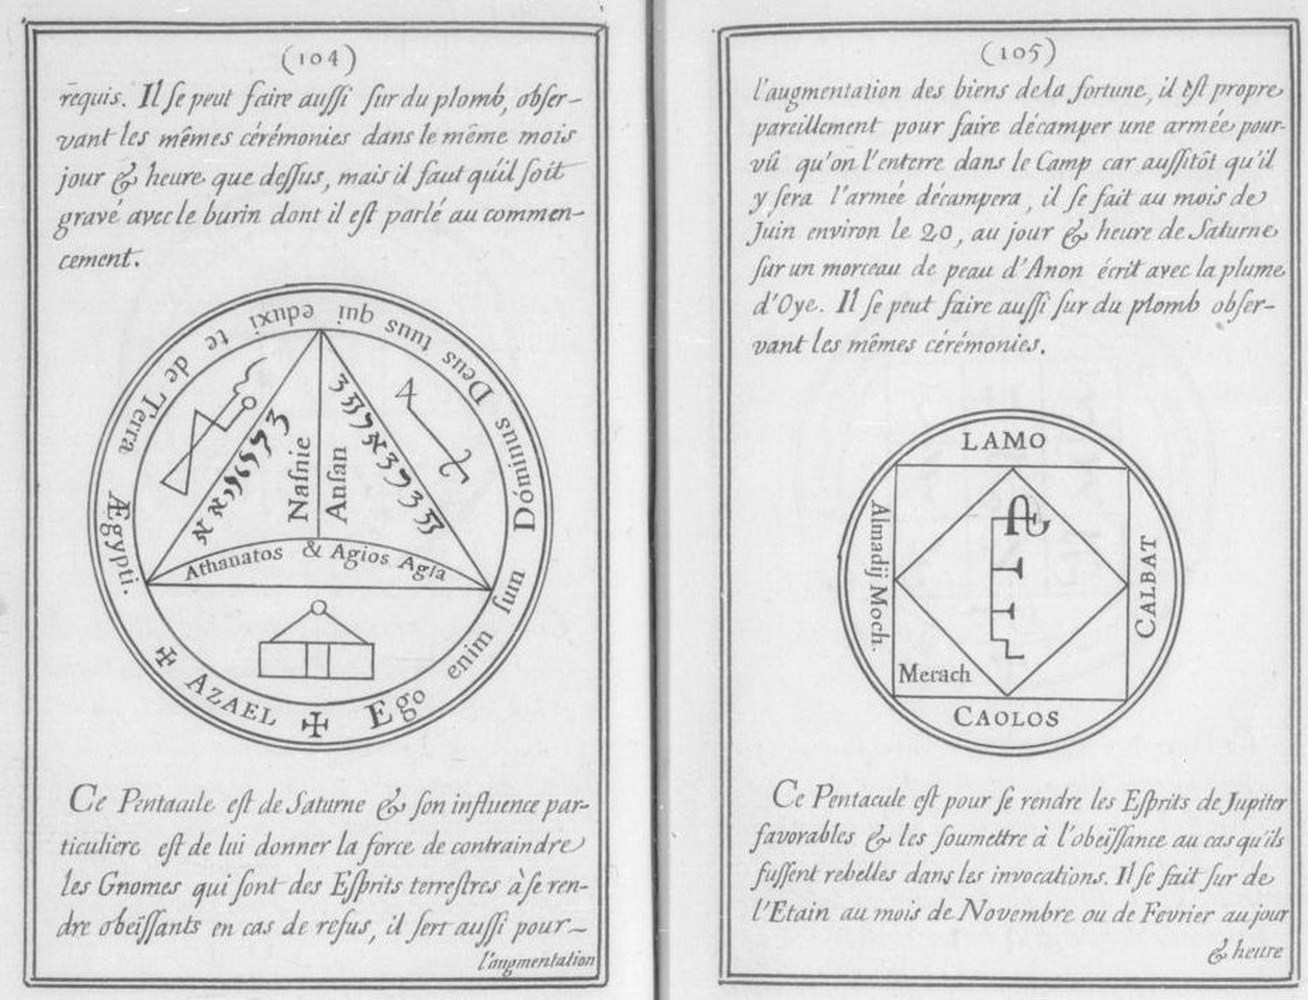 (104)
requis. Il ſe peut faire auſſi ſur du plomb, obſer-
vant les mêmes cérémonies dans le même mois
jour & heure que deſſus, mais il faut qu'il ſoit
gravé avec le burin dont il eſt parlé au commen-
cement.
✠ AZAEL ✠ Ego enim ſum Dóminus Deus tuus qui eduxi te de Terra Ægypti.
Naſnie
Anſan
4
Athanatos & Agios Agla
Ce Pentacule eſt de Saturne & ſon influence par-
ticuliere eſt de lui donner la force de contraindre
les Gnomes qui ſont des Eſprits terreſtres à ſe ren-
dre obeïſſants en cas de refus, il ſert auſſi pour
l'augmentation
(105)
l'augmentation des biens de la fortune, il eſt propre
pareillement pour faire décamper une armée pour-
vû qu'on l'enterre dans le Camp car auſſitôt qu'il
y ſera l'armée décampera, il ſe fait au mois de
Juin environ le 20, au jour & heure de Saturne
ſur un morceau de peau d'Anon écrit avec la plume
d'Oye. Il ſe peut faire auſſi ſur du plomb obſer-
vant les mêmes cérémonies.
LAMO
Almadij Moch.
CALBAT
Merach
CAOLOS
Ce Pentacule eſt pour ſe rendre les Eſprits de Jupiter
favorables & les ſoumettre à l'obeïſſance au cas qu'ils
fuſſent rebelles dans les invocations. Il ſe fait ſur de
l'Etain au mois de Novembre ou de Fevrier au jour
& heure